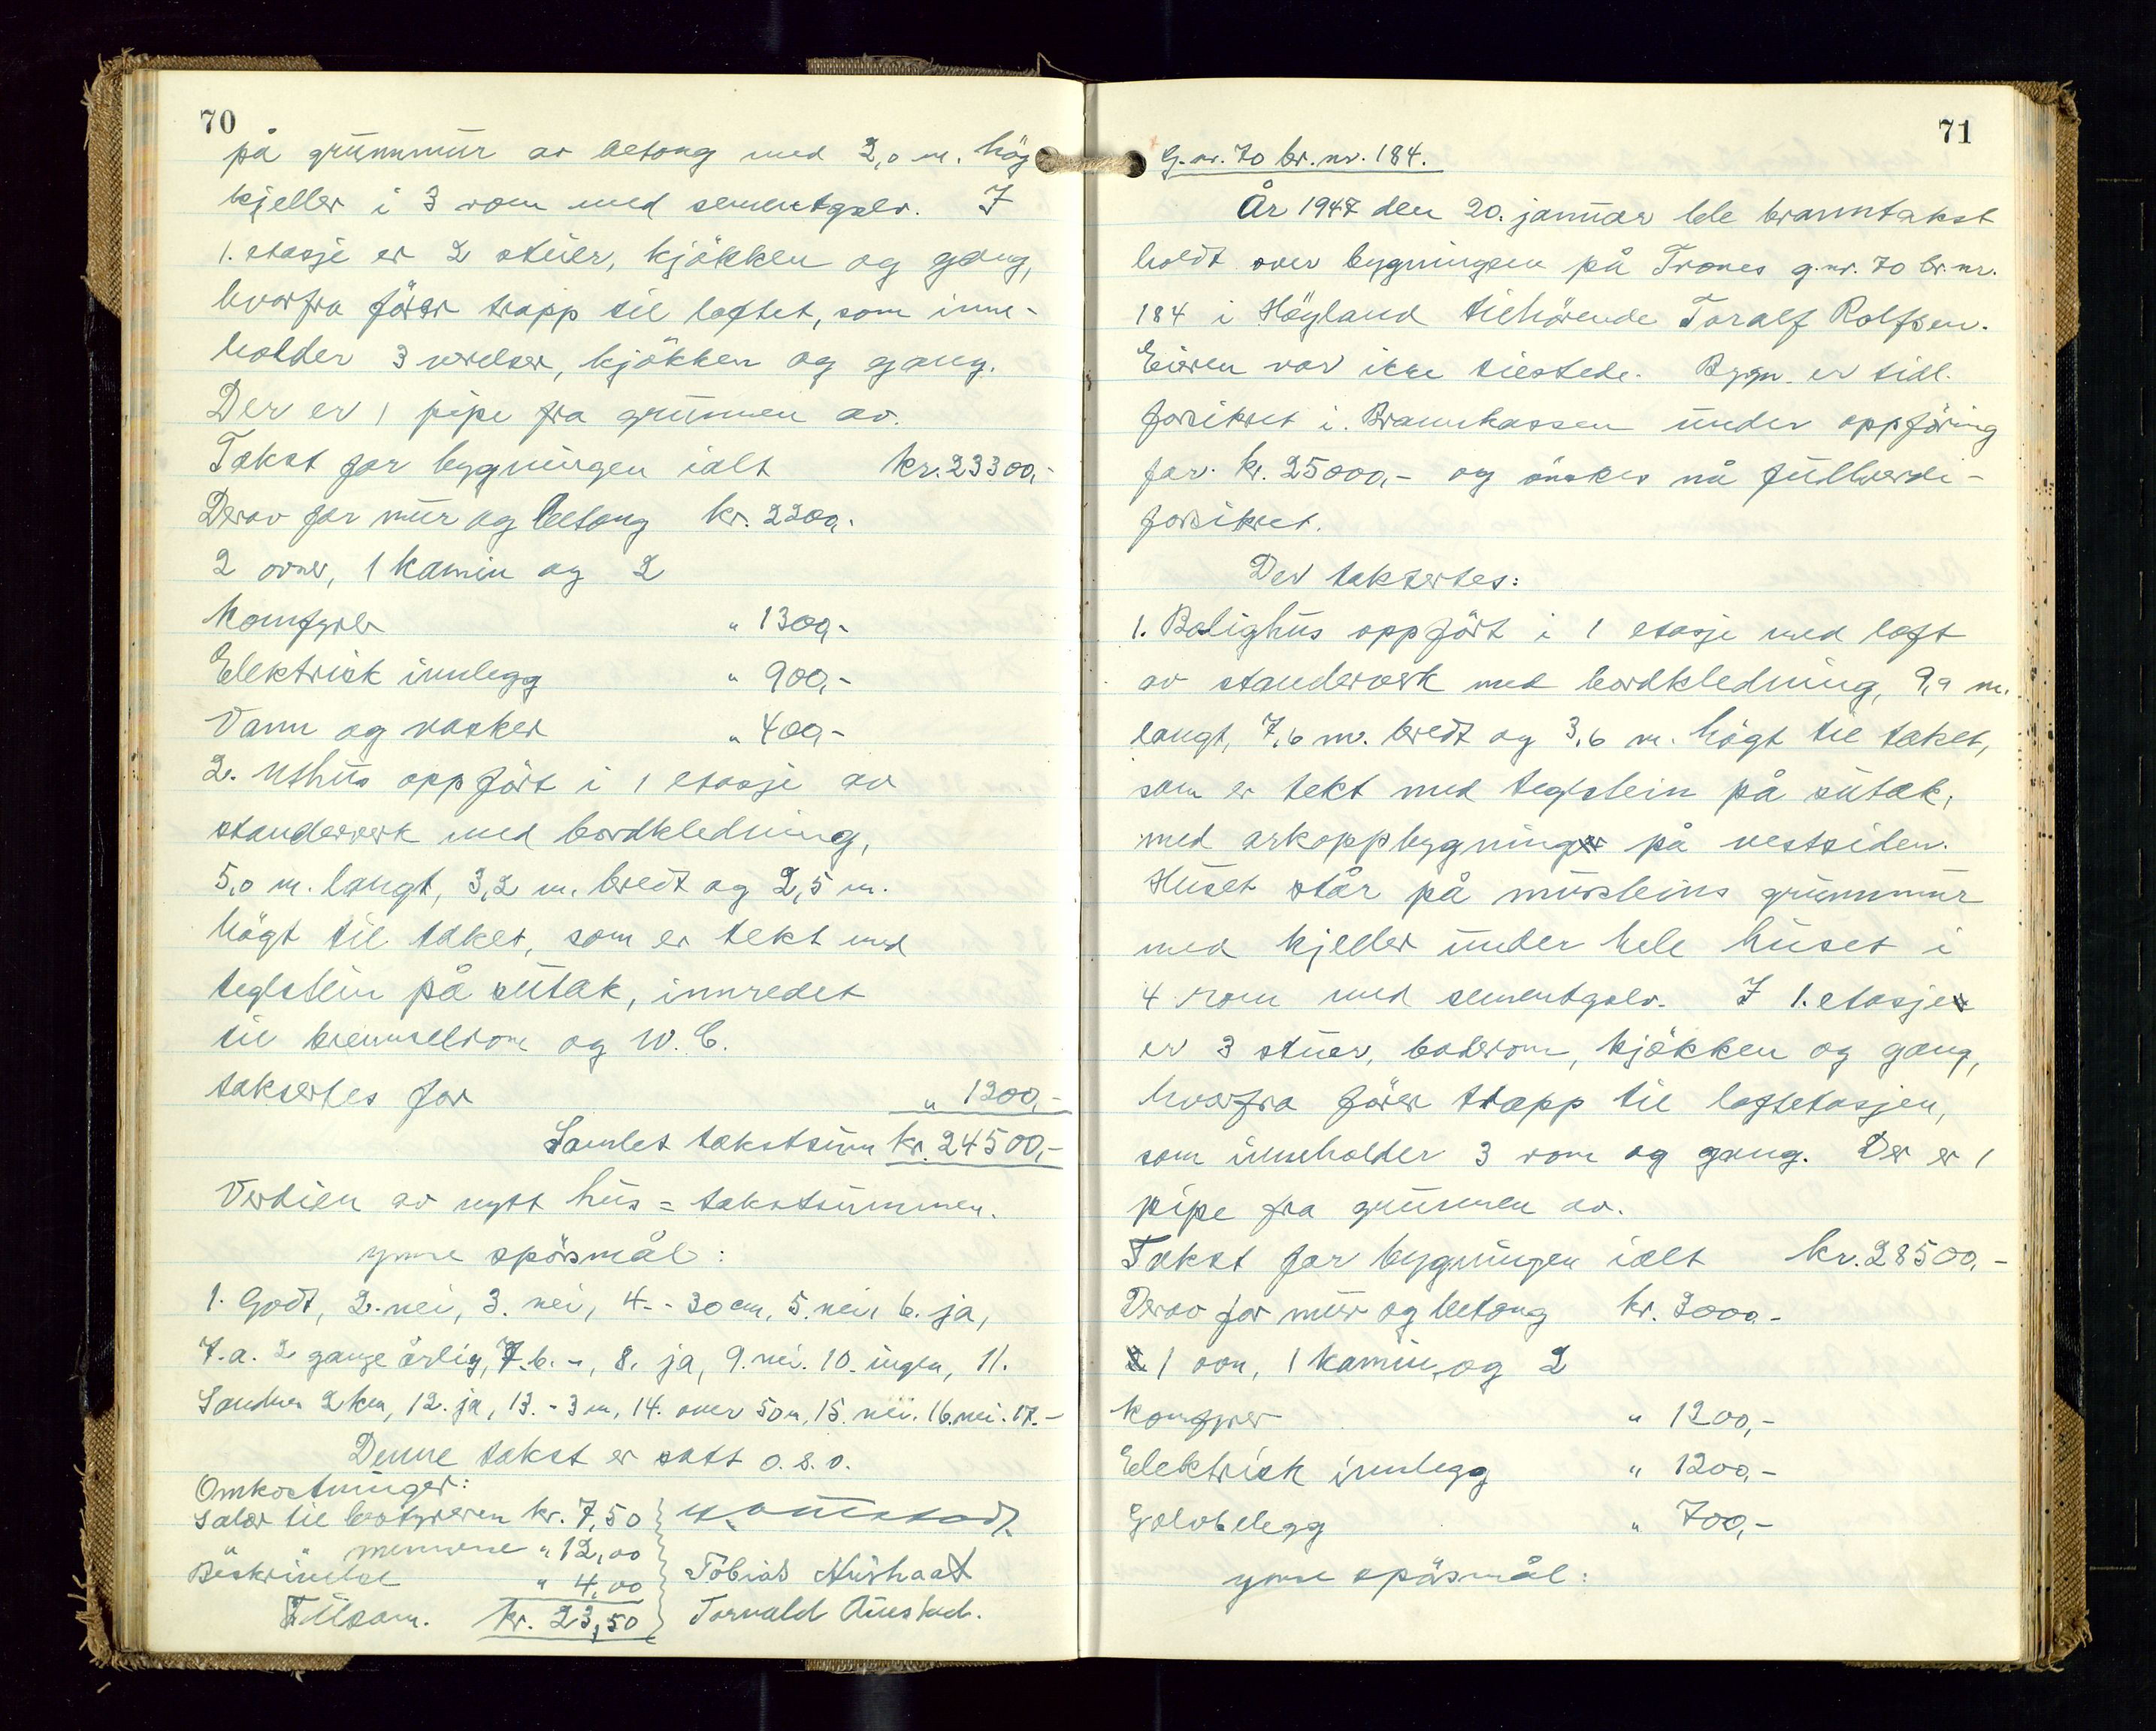 70
på grunnmur av betong med 2,0 m. hög
kjeller i 3 rom med sementgolv. I
1. etasje er 2 stuer, kjökken og gang,
hvorfra förer trapp til loftet, som inne-
holder 3 verelser, kjökken og gang.
Der er 1 pipe fra grunnen av.
Takst for bygningen ialt kr. 23300,-
Derav for mur og betong kr. 2200,-
2 ovner, 1 kamin og 2
komfyrer " 1300,-
Elektrisk innlegg " 900,-
Vann og vasker " 400,-
2. Uthus oppfört i 1 etasje av
standerverk med bordkledning,
5,0 m. langt, 3,2 m. bredt og 2,5 m.
högt til taket, som er tekt med
teglstein på sutak, innredet
til brennselrom og W.C.
taksertes for " 1200,-
Samlet takstsum kr. 24500,-
Verdien av nytt hus = takstsummen.
Ymse spörsmål:
1. Godt, 2. nei, 3. nei, 4. - 30 cm, 5. nei, 6. ja,
7.a. 2 gange årlig, 7.b. -, 8. ja, 9. nei. 10. ingen, 11.
Sandnes 2 km, 12. ja, 13. - 3 m, 14. over 50 m, 15. nei. 16. nei. 17. -
Denne takst er satt o.s.v.
Omkostninger:
Salær til bestyreren kr. 7,50
" " mennene " 12,00
Beskrivelse " 4,00 Tobias Aushaat
Tilsam. kr. 23,50 Torvald Austad.
71
G.nr. 70 br.nr. 184.
År 1947 den 20. januar ble branntakst
holdt over bygningen på Trones g.nr. 70 br.nr.
184 i Höyland tilhörende Toralf Rolfsen.
Eieren var ikke tilstede. Bygn. er tidl.
forsikret i Brannkassen under oppföring
for kr. 25000,- og önskes nå fullverdi-
forsikret.
Der taksertes:
1. Bolighus oppfört i 1 etasje med loft
av standerverk med bordkledning, 9,9 m.
langt, 7,6 m. bredt og 3,6 m. högt til taket,
som er tekt med teglstein på sutak,
med arkoppbygning på vestsiden.
Huset står på mursteins grunnmur
med kjeller under hele huset i
4 rom med sementgolv. I 1. etasje
er 3 stuer, baderom, kjökken og gang,
hvorfra förer trapp til loftetasjen,
som inneholder 3 rom og gang. Der er 1
pipe fra grunnen av.
Takst for bygningen ialt kr. 28500,-
Derav for mur og betong kr. 3000,-
1 ovn, 1 kamin og 2
komfyrer " 1200,-
Elektrisk innlegg " 1200,-
Golvbelegg " 700,-
Ymse spörsmål: